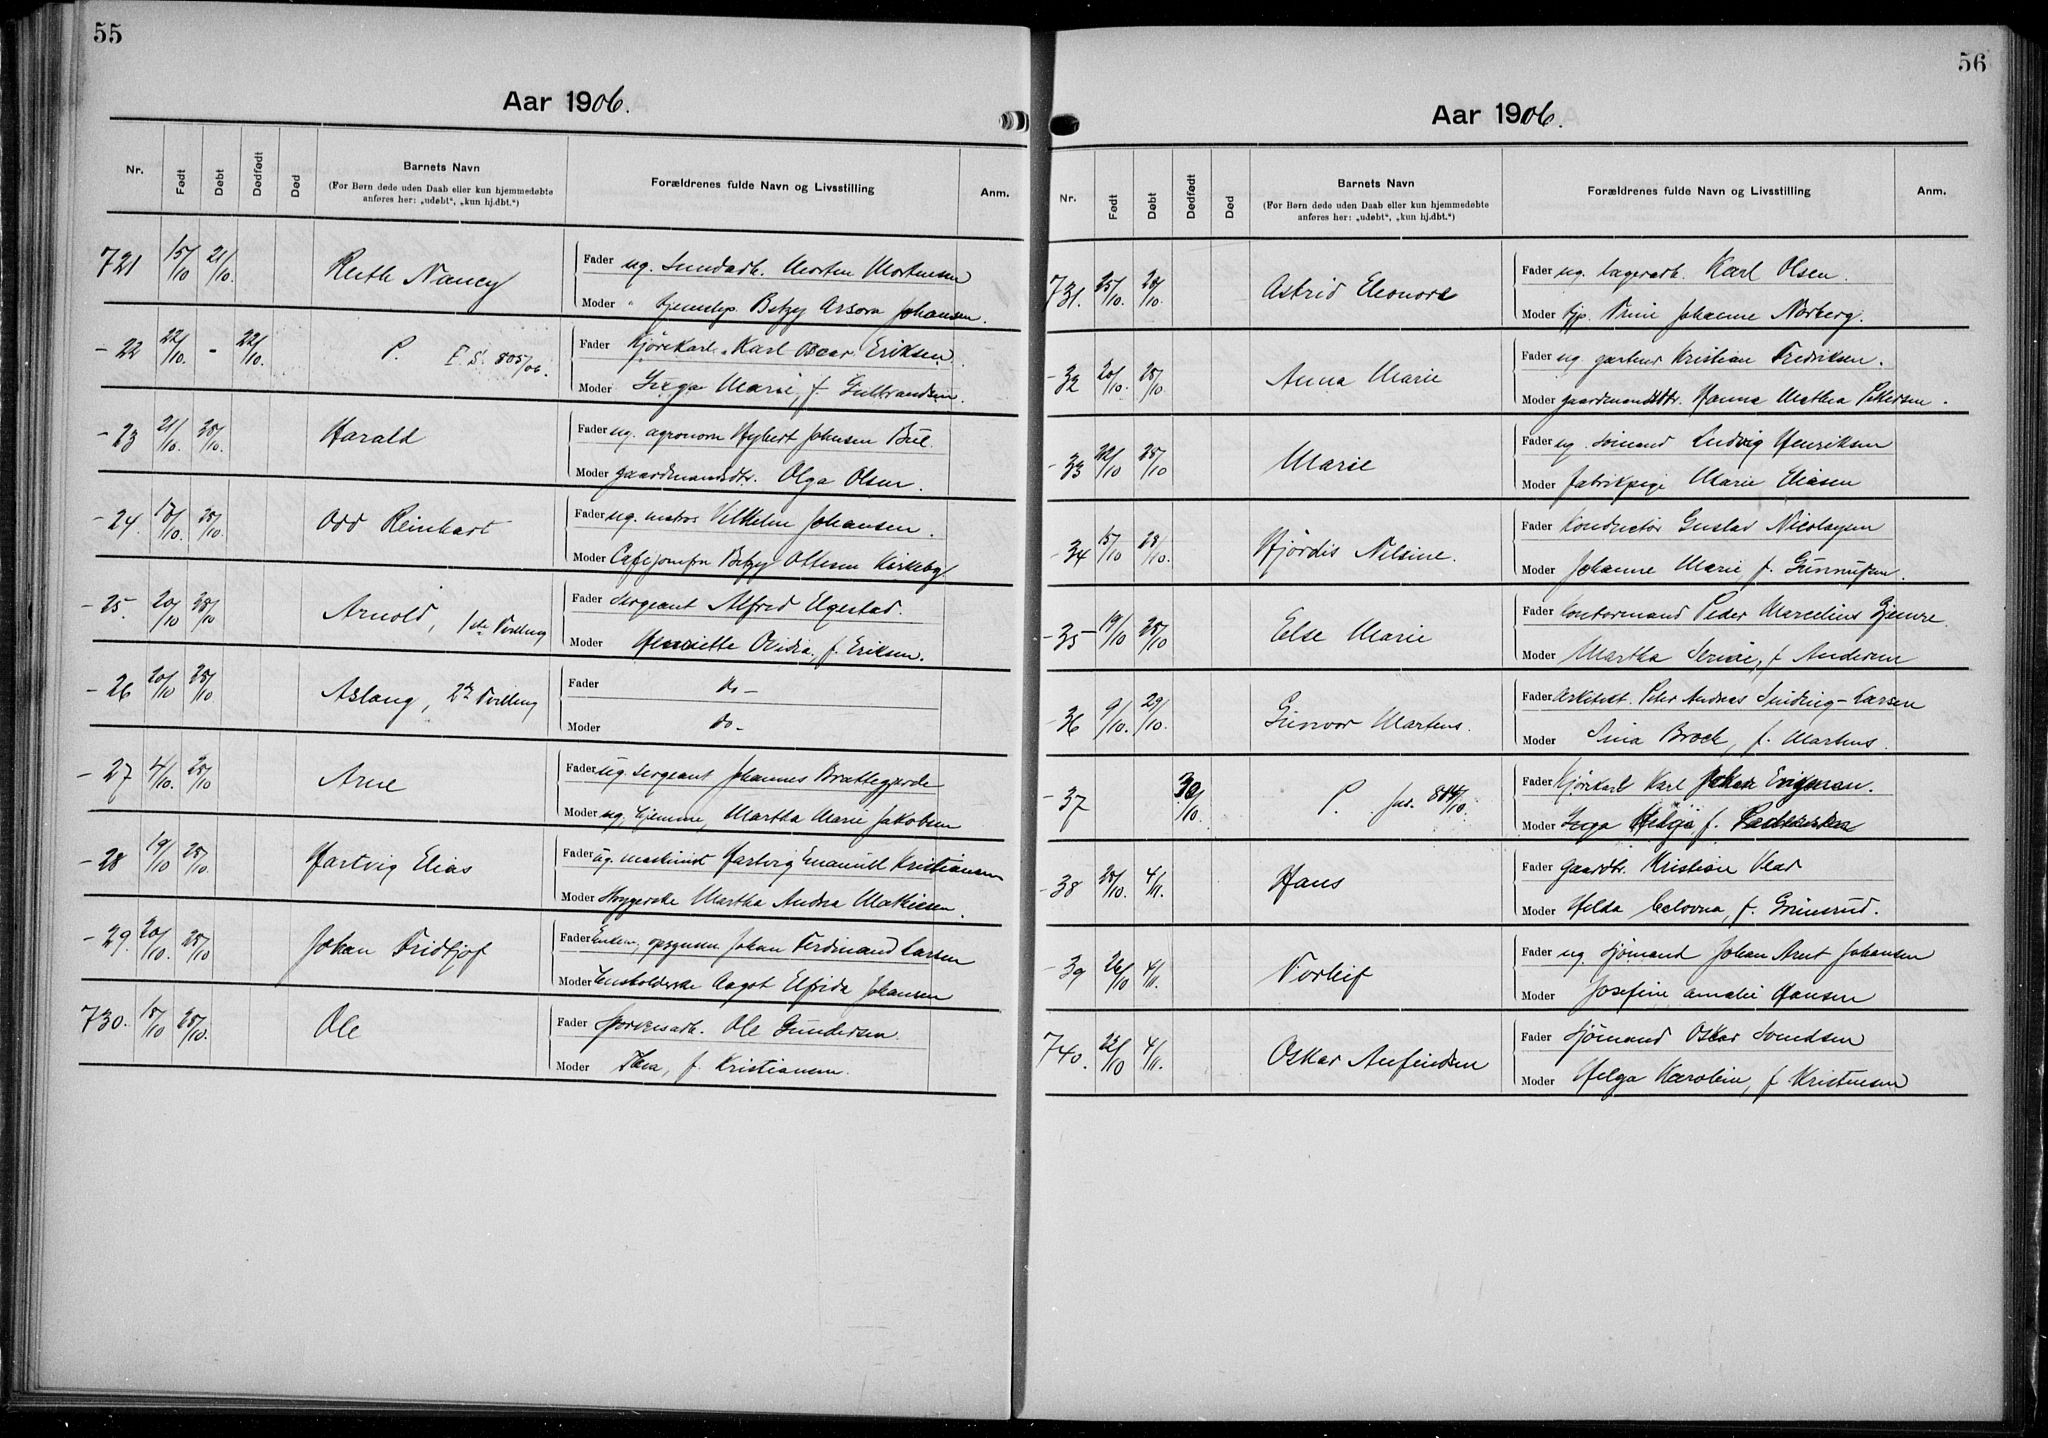 55
Aar 1906.
Nr. Født Døbt Dødfødt Død Barnets Navn Forældrenes fulde Navn og Livsstilling Anm.
(For Børn døde uden Daab eller kun hjemmedøbte
anføres her: „udøbt", „kun hj.dbt.")
721 15/10 21/10. Ruth Nancy Fader ug. Morten Mortensen
Moder " tjenestep. Betzy Arsora Johansen.
- 22 22/10. - 22/10. P. F. S. 805/06. Fader Kjørekarl Karl Oscar Eriksen.
Moder Inga Marie, f. Gulbrandsen.
- 23 21/10. 28/10. Harald Fader ug. agronom Johansen Bul.
Moder gaardmandsdtr. Olga Olsen.
- 24. 28/10. Odd Reinhart Fader ug. matros Vilhelm Johansen.
Moder Cafejomfru Betzy Ottesen Kirkeby.
- 25. 20/10 28/10 Arnold, 1ste Tvilling Fader Sergeant Alfred Elgestad.
Moder Henriette Ovidia, f. Eriksen.
- 26 20/10 28/10 Aslaug, 2den Tvilling Fader do -
Moder do -
- 27 4/10. 28/10 Arne Fader ug. sergeant Johannes Brattegjerde
Moder ug. hjemme, Martha Marie Jakobsen
- 28 19/10 28/10. Hartvig Elias Fader ug. maskinist Hartvig Emanuel Kristiansen
Moder Martha Andrea Mathisen.
- 29. 20/10. 28/10 Johan Fridtjof Fader Enkem, opsynsm Johan Ferdinand Larsen
Moder Husholderske Aagot Elfrida Johansen
730. 15/10 28/10. Ole Fader Ole Gundersen.
Moder Thea, f. Kristiansen.
56
Aar 1906.
Nr. Født Døbt Dødfødt Død Barnets Navn Forældrenes fulde Navn og Livsstilling Anm.
(For Børn døde uden Daab eller kun hjemmedøbte
anføres her: „udøbt", „kun hj.dbt.")
731. 25/10. 28/10. Astrid Eleonore Fader ug. lagerarb. Karl Olsen.
Moder tjp. Trine Johanne Norberg.
- 32 20/10. 28/10. Anna Marie Fader ug. gartner Kristian Fredriksen.
Moder gaardmandsdtr. Hanna Mathea Pettersen.
- 33 22/10 28/10 Marie Fader ug. sømand Ludvig Henriksen
Moder fabrikpige Marie Eliasen
- 34 15/10 28/10. Hjørdis Nilsine. Fader Konductør Gustav Nicolaysen
Moder Johanne Marie f. Gunnufsen.
- 35 19/10 28/10 Else Marie Fader Contormand Peder Marcelius Gjemre.
Moder Martha Serine, f Andersen
- 36 9/10. 29/10. Gunvor Martens. Fader Arkitekt. Peter Andreas Sinding-Larsen
Moder Sina Brock, f. Martens.
- 37 30/10. P. Fader Kjørekarl Karl Johan
Moder Inga Helga f.
- 38 28/10. 4/11. Hans Fader gaardbr. Kristian Ulad
Moder Hilda f. Grimsrud.
- 39 26/10 4/11. Torleif Fader ug. sjømand Johan Arnt Johansen
Moder Josefine Amalie Hansen
740. 23/10 4/11. Oskar Anfindsen Fader sjømand Oskar Svendsen
Moder Helga Karoline, f Kristensen